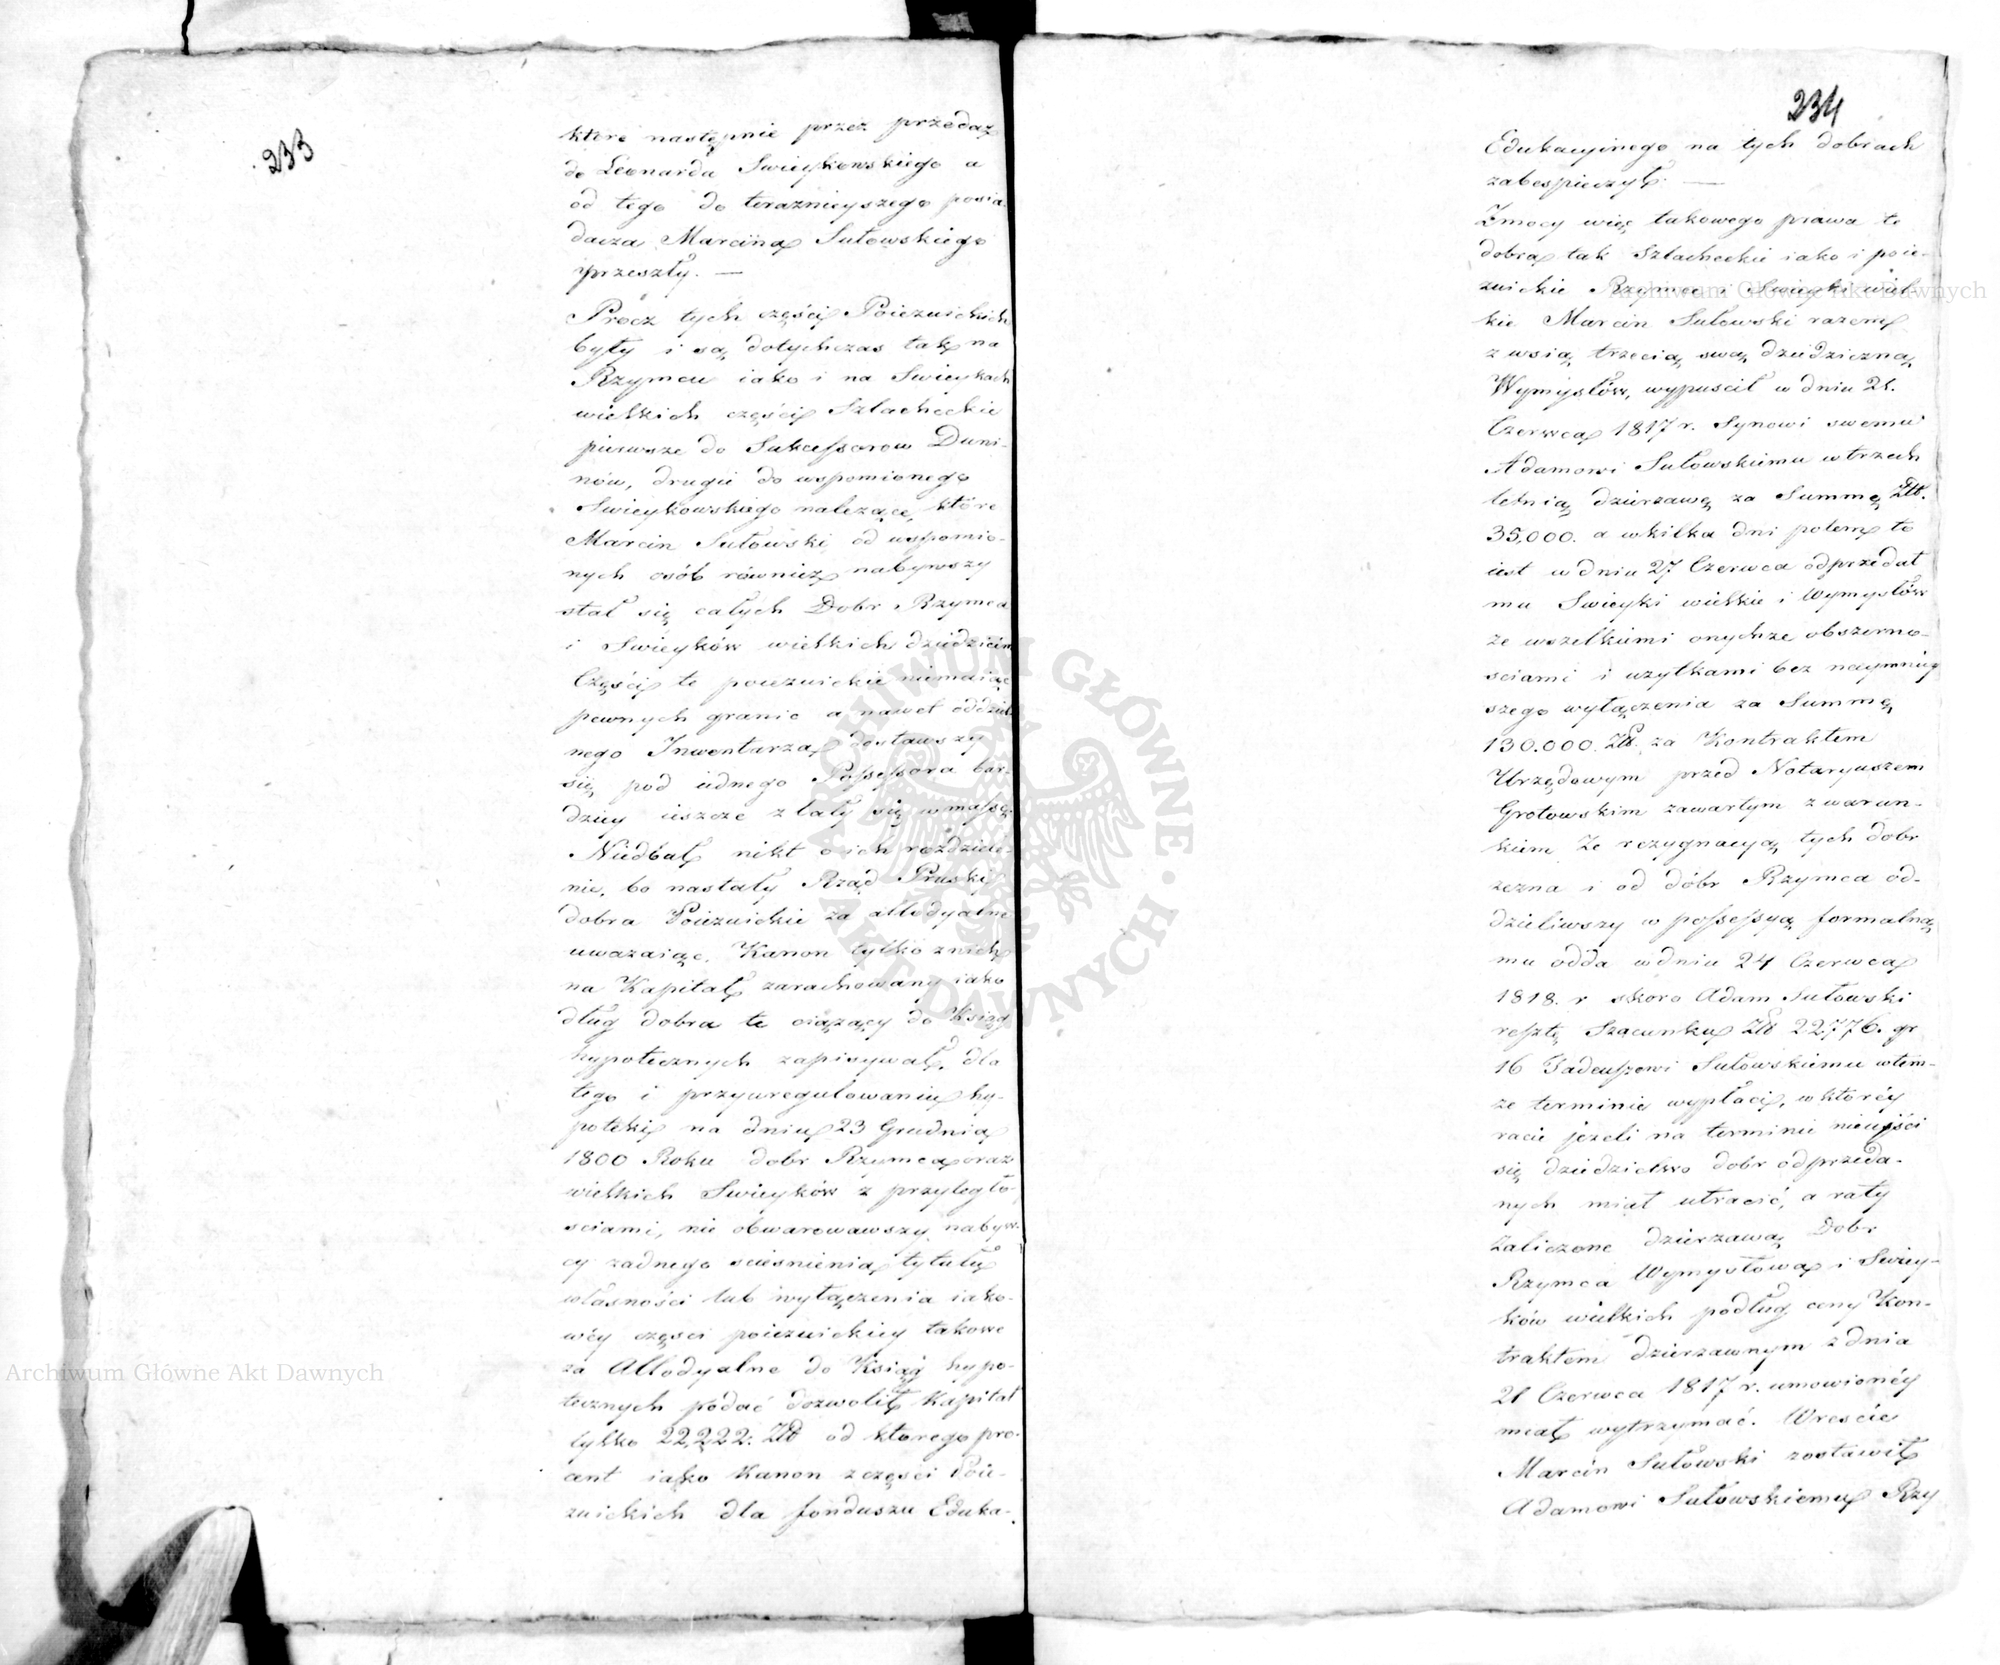 233
które następnie przez przedaż
do Leonarda Swieykowskiego a
od tego do teraznieyszego posia-
dacza Marcina Sułowskiego
przeszły. —
Procz tych części Poiezuickich
były i są dotychczas tak na
Rzymcu iako i na Swieykach
wielkich części Szlacheckie
pierwsze do Sukcessorow Duni-
nów, drugie do wspomionego
Swieykowskiego należące, które
Marcin Sułowski od wspomio-
nych osób również nabywszy
stał się całych Dobr Rzymca
i Swieyków wielkich dziedzicem
Części te poiezuickie niemaiąc
pewnych granic a nawet oddziel-
nego Inwentarza dostawszy
się pod iednego Possessora bar-
dziey ieszcze zlały się w massę.
Niedbał nikt o ich rozdziele-
nie, bo nastały Rząd Pruski
dobra Poiezuickie za allodyalne
uwazaiąc, Kanon tylko z nich
na Kapitał zarachowany iako
dług dobra te ciążący do Ksiąg
hypotecznych zapisywał, dla
tego i przyuregulowaniu hy-
poteki na dniu 23 Grudnia
1800 Roku dobr Rzymca oraz
wielkich Swieyków z przyległo-
sciami, nie obwarowawszy nabyw-
cy zadnego sciesnienia tytułu
własności lub wyłączenia iako-
wéy częsci poiezuickiey takowe
za Allodyalne do Ksiąg hypo-
tecznych podać dozwolił Kapitał
tylko 22,222. Złł od którego pro-
cent iako Kanon z częsci Poie-
zuickich dla funduszu Eduka-
234
Edukacyinego na tych dobrach
zabespieczył. —
Zmocy więc takowego prawa te
dobra tak Szlacheckie iako i poie-
zuickie Rzymiec i Swieyki wiel-
kie Marcin Sułowski razem
z wsią trzecią swą dziedziczną
Wymysłów, wypuscił w dniu 21.
Czerwca 1817 r. Synowi swemu
Adamowi Sułowskiemu w trzech
letnią dzierzawę za Summę Złł.
35,000. a w kilka dni potem to
iest w dniu 27 Czerwca odprzedał
mu Swieyki wielkie i Wymysłów
ze wszelkiemi onychze obszerno-
sciami i uzytkami bez naymniey-
szego wyłączenia za Summę
130.000. Złł. za Kontraktem
Urzędowym przed Notaryuszem
Grotowskim zawartym z warun-
kiem Ze rezygnacyą tych dobr
zezna i od dóbr Rzymca od-
dzieliwszy w possessyą formalną
mu odda w dniu 24 Czerwca
1818. r skoro Adam Sułowski
resztę Szacunku Złł 22776. gr
16 Tadeuszowi Sułowskiemu w tem-
ze terminie wypłaci, w któréy
racie jezeli na terminie nieuiści
się dziedzictwo dobr odprzeda-
nych miał utracić, a raty
Zaliczone dzierzawą Dobr
Rzymca Wymysłowa i Swiey-
ków wielkich podług ceny Kon-
traktem dzierzawnym z dnia
21 Czerwca 1817 r. umowionéy
miał wytrzymać. Wrescie
Marcin Sułowski zostawił
Adamowi Sułowskiemu Rzy
Archiwum Główne Akt Dawnych
Archiwum Główne Akt Dawnych
ARCHIWUM GŁÓWNE · AKT DAWNYCH ·